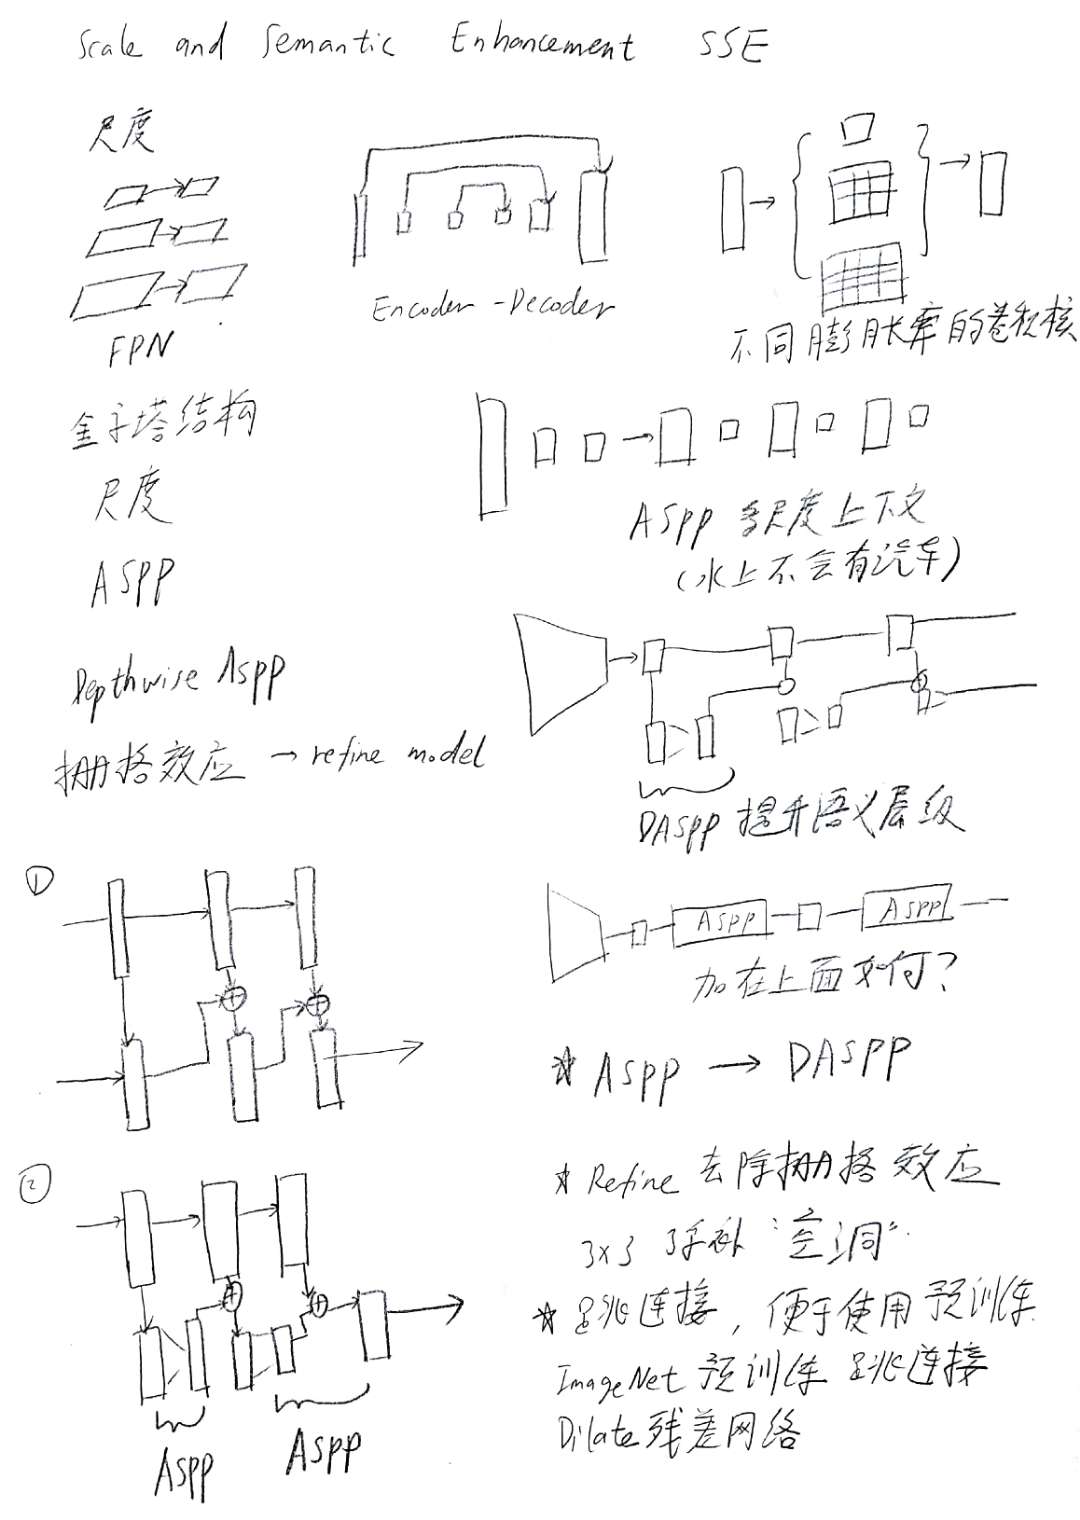 Scale and Semantic Enhancement SSE
尺度
FPN
Encoder-Decoder
不同膨胀率的卷积核
金字塔结构
尺度
ASPP
ASPP 多尺度上下文
(水上不会有汽车)
Depthwise ASPP
栅格效应 → refine model
DASPP 提升语义层级
①
ASPP ASPP
加在上面如何?
* ASPP → DASPP
②
* Refine 去除栅格效应
3x3 弥补"空洞"
* 跳连接, 便于使用预训练
ImageNet 预训练 跳连接
Dilate 残差网络
ASPP ASPP